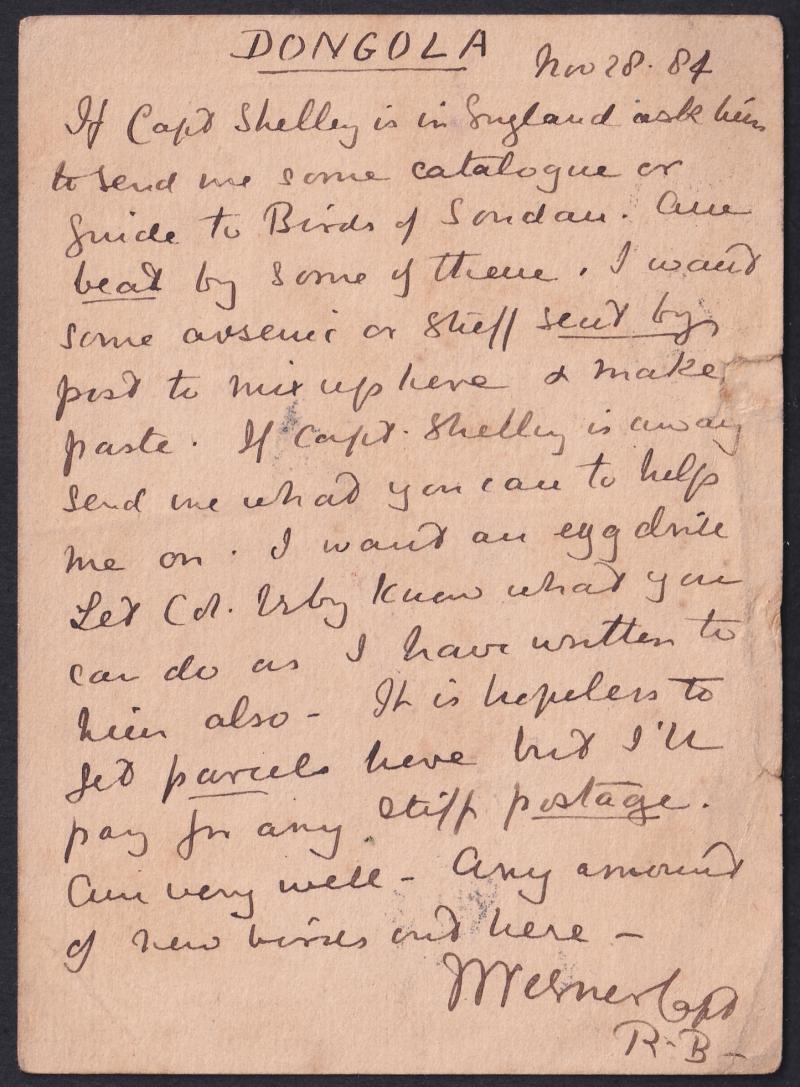 DONGOLA
Nov 28. 84
If Capt Shelley is in England ask him
to send me some catalogue or
guide to Birds of Soudan. Am
beat by some of them. I want
some arsenic or stuff sent by
post to mix up here & make
paste. If Capt. Shelley is away
send me what you can to help
me on. I want an egg drill
Let Col. Irby know what you
can do as I have written to
him also - It is hopeless to
get parcels here but I'll
pay for any stiff postage.
Am very well - Any amount
of new birds out here -
Verner Capt
R.B-